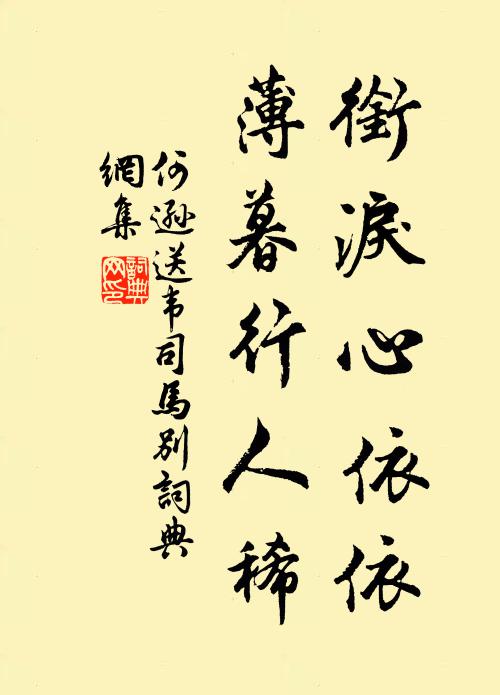 銜淚心依依
薄暮行人稀
何遜送韦司馬别詞典
網集
詞典網印